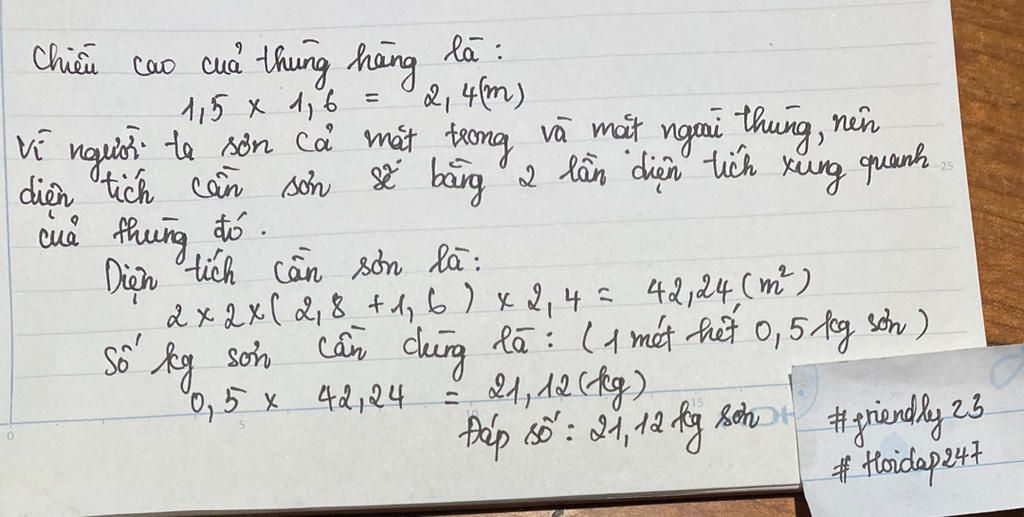 Chiều cao cuả thùng hàng là:
1,5 x 1,6 = 2,4(m)
Vì người ta sơn cả mặt trong và mặt ngoài thùng, nên
diện tích cần sơn sẽ bằng 2 lần diện tích xung quanh
cuả thùng đó.
Diện tích cần sơn là:
2 x 2 x ( 2,8 + 1,6 ) x 2,4 = 42,24 (m²)
Số kg sơn cần dùng là: (1 mét hết 0,5 kg sơn)
0,5 x 42,24 = 21,12 (kg)
Đáp số: 21,12 kg sơn
#friendly23
#Hoidap247